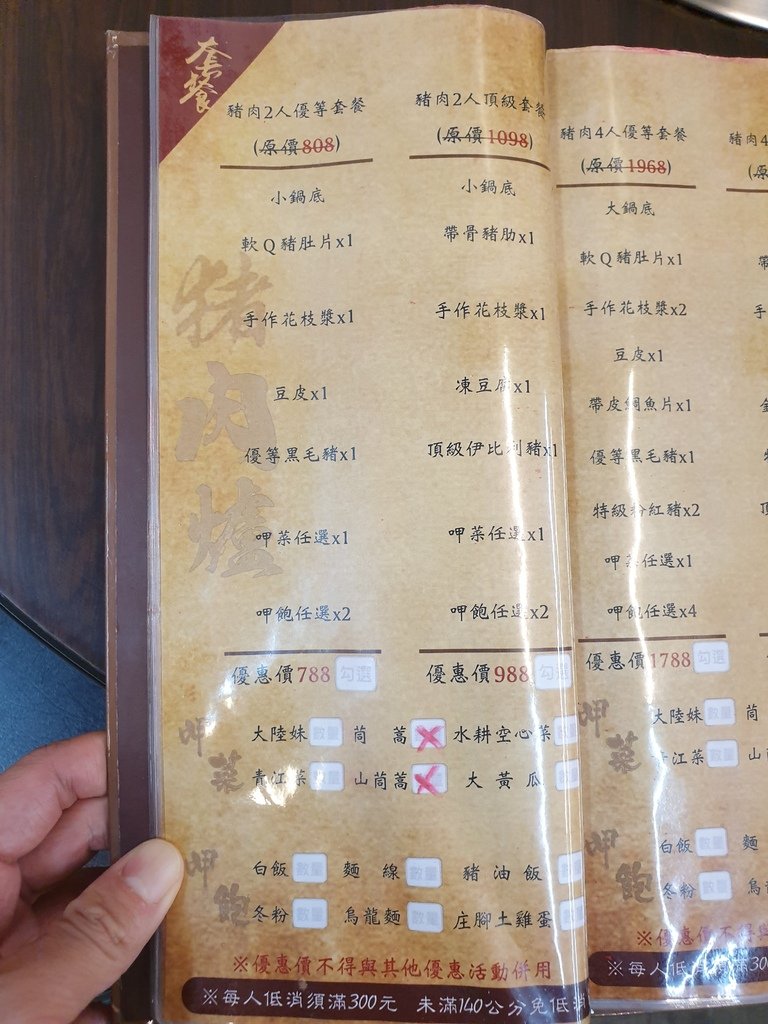 套餐
豬肉2人優等套餐
(原價808)
小鍋底
軟Q豬肚片x1
手作花枝漿x1
豆皮x1
優等黑毛豬x1
呷菜任選x1
呷飽任選x2
優惠價788 勾選
豬肉2人頂級套餐
(原價1098)
小鍋底
帶骨豬肋x1
手作花枝漿x1
凍豆腐x1
頂級伊比利豬x1
呷菜任選x1
呷飽任選x2
優惠價988 勾選
豬肉爐
呷菜
大陸妹 數量 茼蒿 水耕空心菜
青江菜 數量 山茼蒿 大黃瓜
呷飽
白飯 數量 麵線 數量 豬油飯
冬粉 數量 烏龍麵 數量 庄腳土雞蛋
※優惠價不得與其他優惠活動併用
※每人低消須滿300元 未滿140公分免低消
豬肉4人優等套餐
(原價1968)
大鍋底
軟Q豬肚片x1
手作花枝漿x2
豆皮x1
帶皮鯛魚片x1
優等黑毛豬x1
特級粉紅豬x2
呷菜任選x1
呷飽任選x4
優惠價1788 勾選
豬肉4
呷菜
大陸妹 數量 茼
青江菜 數量 山
呷飽
白飯 數量 麵
冬粉 數量 烏
※優惠價不得與
※每人低消須滿300